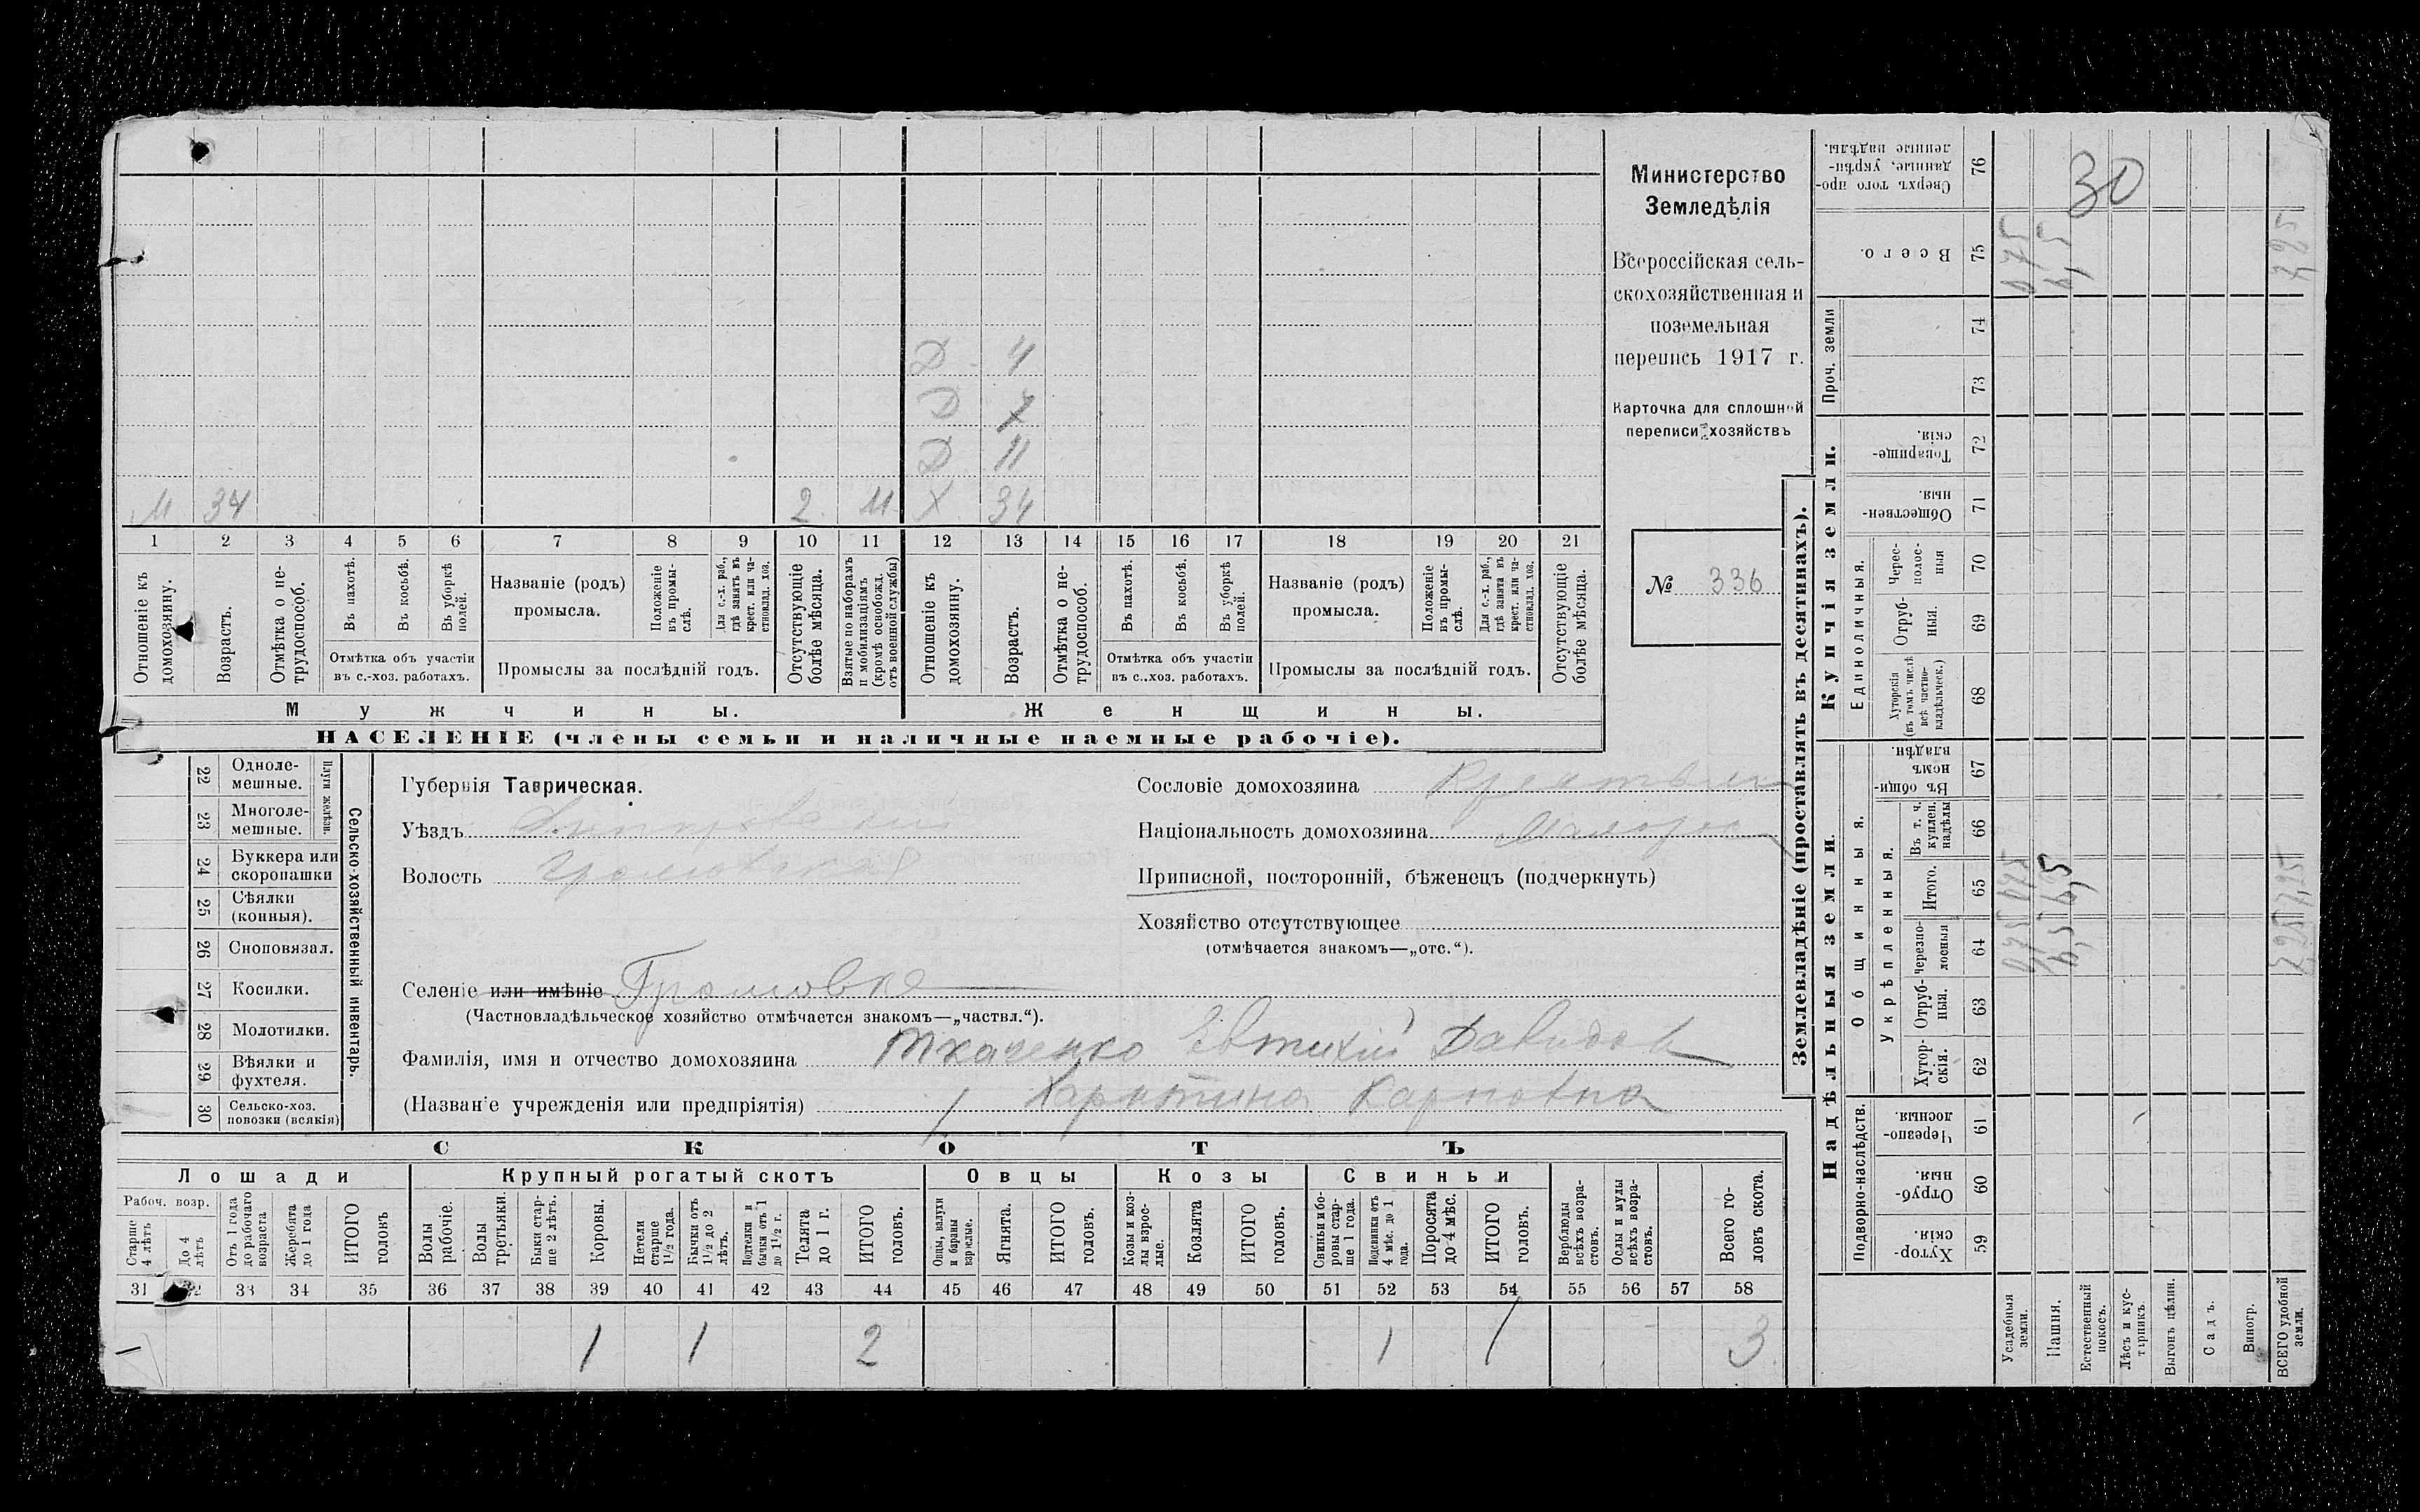 Министерство
Земледѣлія
Всероссійская сель-
скохозяйственная и
поземельная
перепись 1917 г.
Карточка для сплошной
переписи хозяйствъ
№ 336
Д 4
Д 7
Д 11
М 34 2 М Х 34
1 2 3 4 5 6 7 8 9 10 11 12 13 14 15 16 17 18 19 20 21
Отношеніе къ домохозяину.
Возрастъ.
Отмѣтка о не-трудоспособ.
Въ пахотѣ.
Въ косьбѣ.
Въ уборкѣ полей.
Отмѣтка объ участіи въ с.-хоз. работахъ.
Названіе (родъ) промысла.
Положеніе въ промы-слѣ.
Для с.-х. раб., гдѣ занятъ въ крест. или ча-стновлад. хоз.
Промыслы за послѣдній годъ.
Отсутствующіе болѣе мѣсяца.
Взятые по наборамъ и мобилизаціямъ (кромѣ освобожд. отъ военной службы)
Отношеніе къ домохозяину.
Возрастъ.
Отмѣтка о не-трудоспособ.
Въ пахотѣ.
Въ косьбѣ.
Въ уборкѣ полей.
Отмѣтка объ участіи въ с..хоз. работахъ.
Названіе (родъ) промысла.
Положеніе въ промы-слѣ.
Для с.-х. раб., гдѣ занята въ крест. или ча-стновлад. хоз.
Промыслы за послѣдній годъ.
Отсутствующіе болѣе мѣсяца.
Мужчины. Женщины.
НАСЕЛЕНІЕ (члены семьи и наличные наемные рабочіе).
22 Одноле-мешные.
23 Многоле-мешные.
Плуги желѣзн.
24 Буккера или скоропашки
25 Сѣялки (конныя).
26 Сноповязал.
27 Косилки.
28 Молотилки.
29 Вѣялки и фухтеля.
30 Сельско-хоз. повозки (всякія)
Сельско-хозяйственный инвентарь.
Губернія Таврическая.
Уѣздъ Днѣпровскій
Волость Громовская
Селеніе или имѣніе Громовка
(Частновладѣльческое хозяйство отмѣчается знакомъ—„частвл.“).
Фамилія, имя и отчество домохозяина Ткаченко Евтихій Давидов
(Названіе учрежденія или предпріятія) Харитина Карповна
Сословіе домохозяина
Національность домохозяина Малорос
Приписной, посторонній, бѣженецъ (подчеркнуть)
Хозяйство отсутствующее
(отмѣчается знакомъ—„отс.“).
СКОТЪ
Лошади Крупный рогатый скотъ Овцы Козы Свиньи
Рабоч. возр.
Старше 4 лѣтъ
До 4 лѣтъ
Отъ 1 года до рабочаго возраста
Жеребята до 1 года
ИТОГО головъ
Волы рабочіе.
Волы третьяки.
Быки стар-ше 2 лѣтъ.
Коровы.
Нетели старше 1½ года.
Бычки отъ 1½ до 2 лѣтъ.
Подтелки и бычки отъ 1 до 1½ г.
Телята до 1 г.
ИТОГО головъ.
Овцы, валухи и бараны взрослые.
Ягнята.
ИТОГО головъ.
Козы и коз-лы взрос-лые.
Козлята
ИТОГО головъ.
Свиньи и бо-ровы стар-ше 1 года.
Подсвинки отъ 4 мѣс. до 1 года.
Поросята до 4 мѣс.
ИТОГО головъ.
Верблюды всѣхъ возра-стовъ.
Ослы и мулы всѣхъ возра-стовъ.
Всего го-ловъ скота.
31 32 33 34 35 36 37 38 39 40 41 42 43 44 45 46 47 48 49 50 51 52 53 54 55 56 57 58
1 1 2 1 1 3
Землевладѣніе (проставлять въ десятинахъ).
Надѣльныя земли. Купчія земли. Проч. земли
Подворно-наслѣдств. Общинныя.
Укрѣпленныя. Единоличныя.
59 Хутор-скія.
60 Отруб-ныя.
61 Черезпо-лосныя.
62 Хутор-скія.
63 Отруб-ныя.
64 Черезпо-лосныя
65 Итого.
66 Въ т. ч. куплен. надѣлы
67 Въ общи-номъ владѣн.
68 Хуторскія (въ томъ числѣ всѣ частно-владѣльческ.)
69 Отруб-ныя.
70 Черес-полос-ныя
71 Обществен-ныя.
72 Товарище-скія.
73
74
75 Всего.
76 Сверхъ того про-данные, укрѣп-ленные надѣлы.
Усадебныя земли.
0,75 0,75 0,75
Пашня.
6,5 6,5 6,5
30
Естественный покосъ.
Лѣсъ и кус-тарникъ.
Выгонъ цѣлин.
Садъ.
Виногр.
ВСЕГО удобной земли.
7,25 7,25 7,25